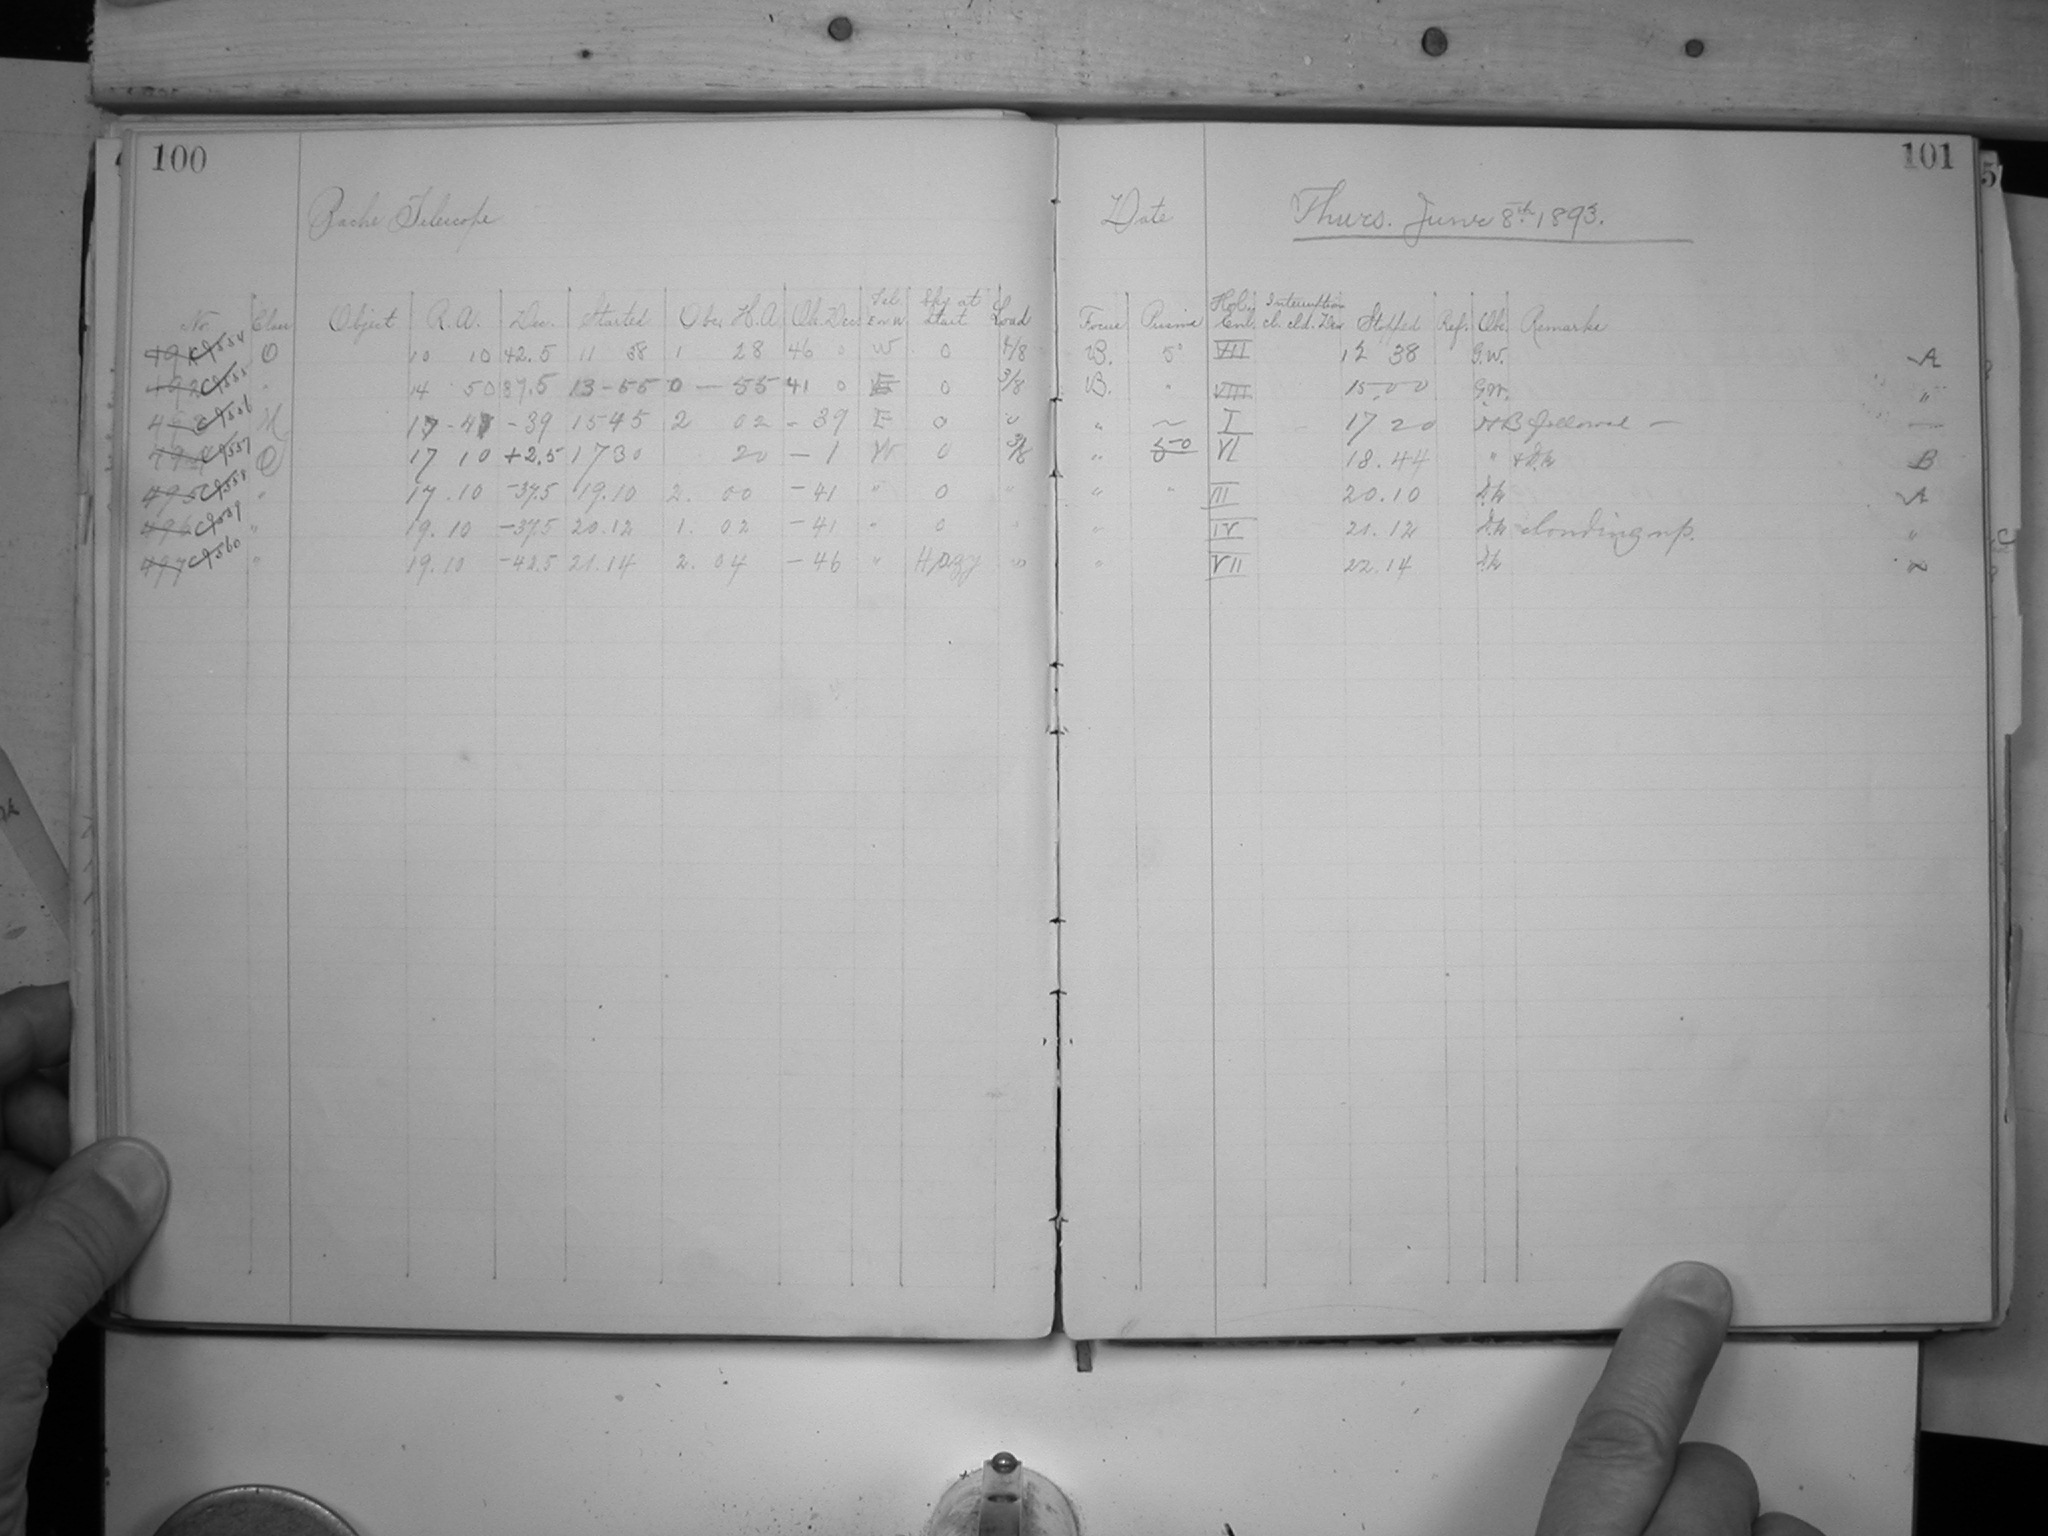 100
101
Bache Telescope
Date Thurs. June 8th 1893.
No. Class Object R.A. Dec. Started Obs. H.A Ob. Dec. Tel. E or W Sky at Start Load Focus Prisms Hol. Enl. Interruption cl. cld. Dew Stopped Ref. Obs. Remarks
491 C9554 O 10 10 42.5 11 58 1 28 46 0 W 0 B. 5° VII 12 38 G.W. A
492 C9555 " 14 50 37.5 13-55 0 - 55 41 0 E 0 3/8 B. " VIII 15.00 G.W. "
493 C9556 M - 39 1545 2 02 - 39 E 0 " " ~ I 17 20 HB followed —
494 C9557 O 17 10 +2.5 1730 20 - 1 W 0 3/8 " 50 VI 18.44 " B
495 C9558 " 17.10 -37.5 19.10 2. 00 - 41 " 0 " " " III 20.10 A
496 C9559 " 19.10 -37.5 20.12 1. 02 - 41 " 0 " " IV 21.12 clouding up. "
497 C9560 " 19.10 -42.5 21.14 2. 04 - 46 " Hazy " " VII 22.14 "